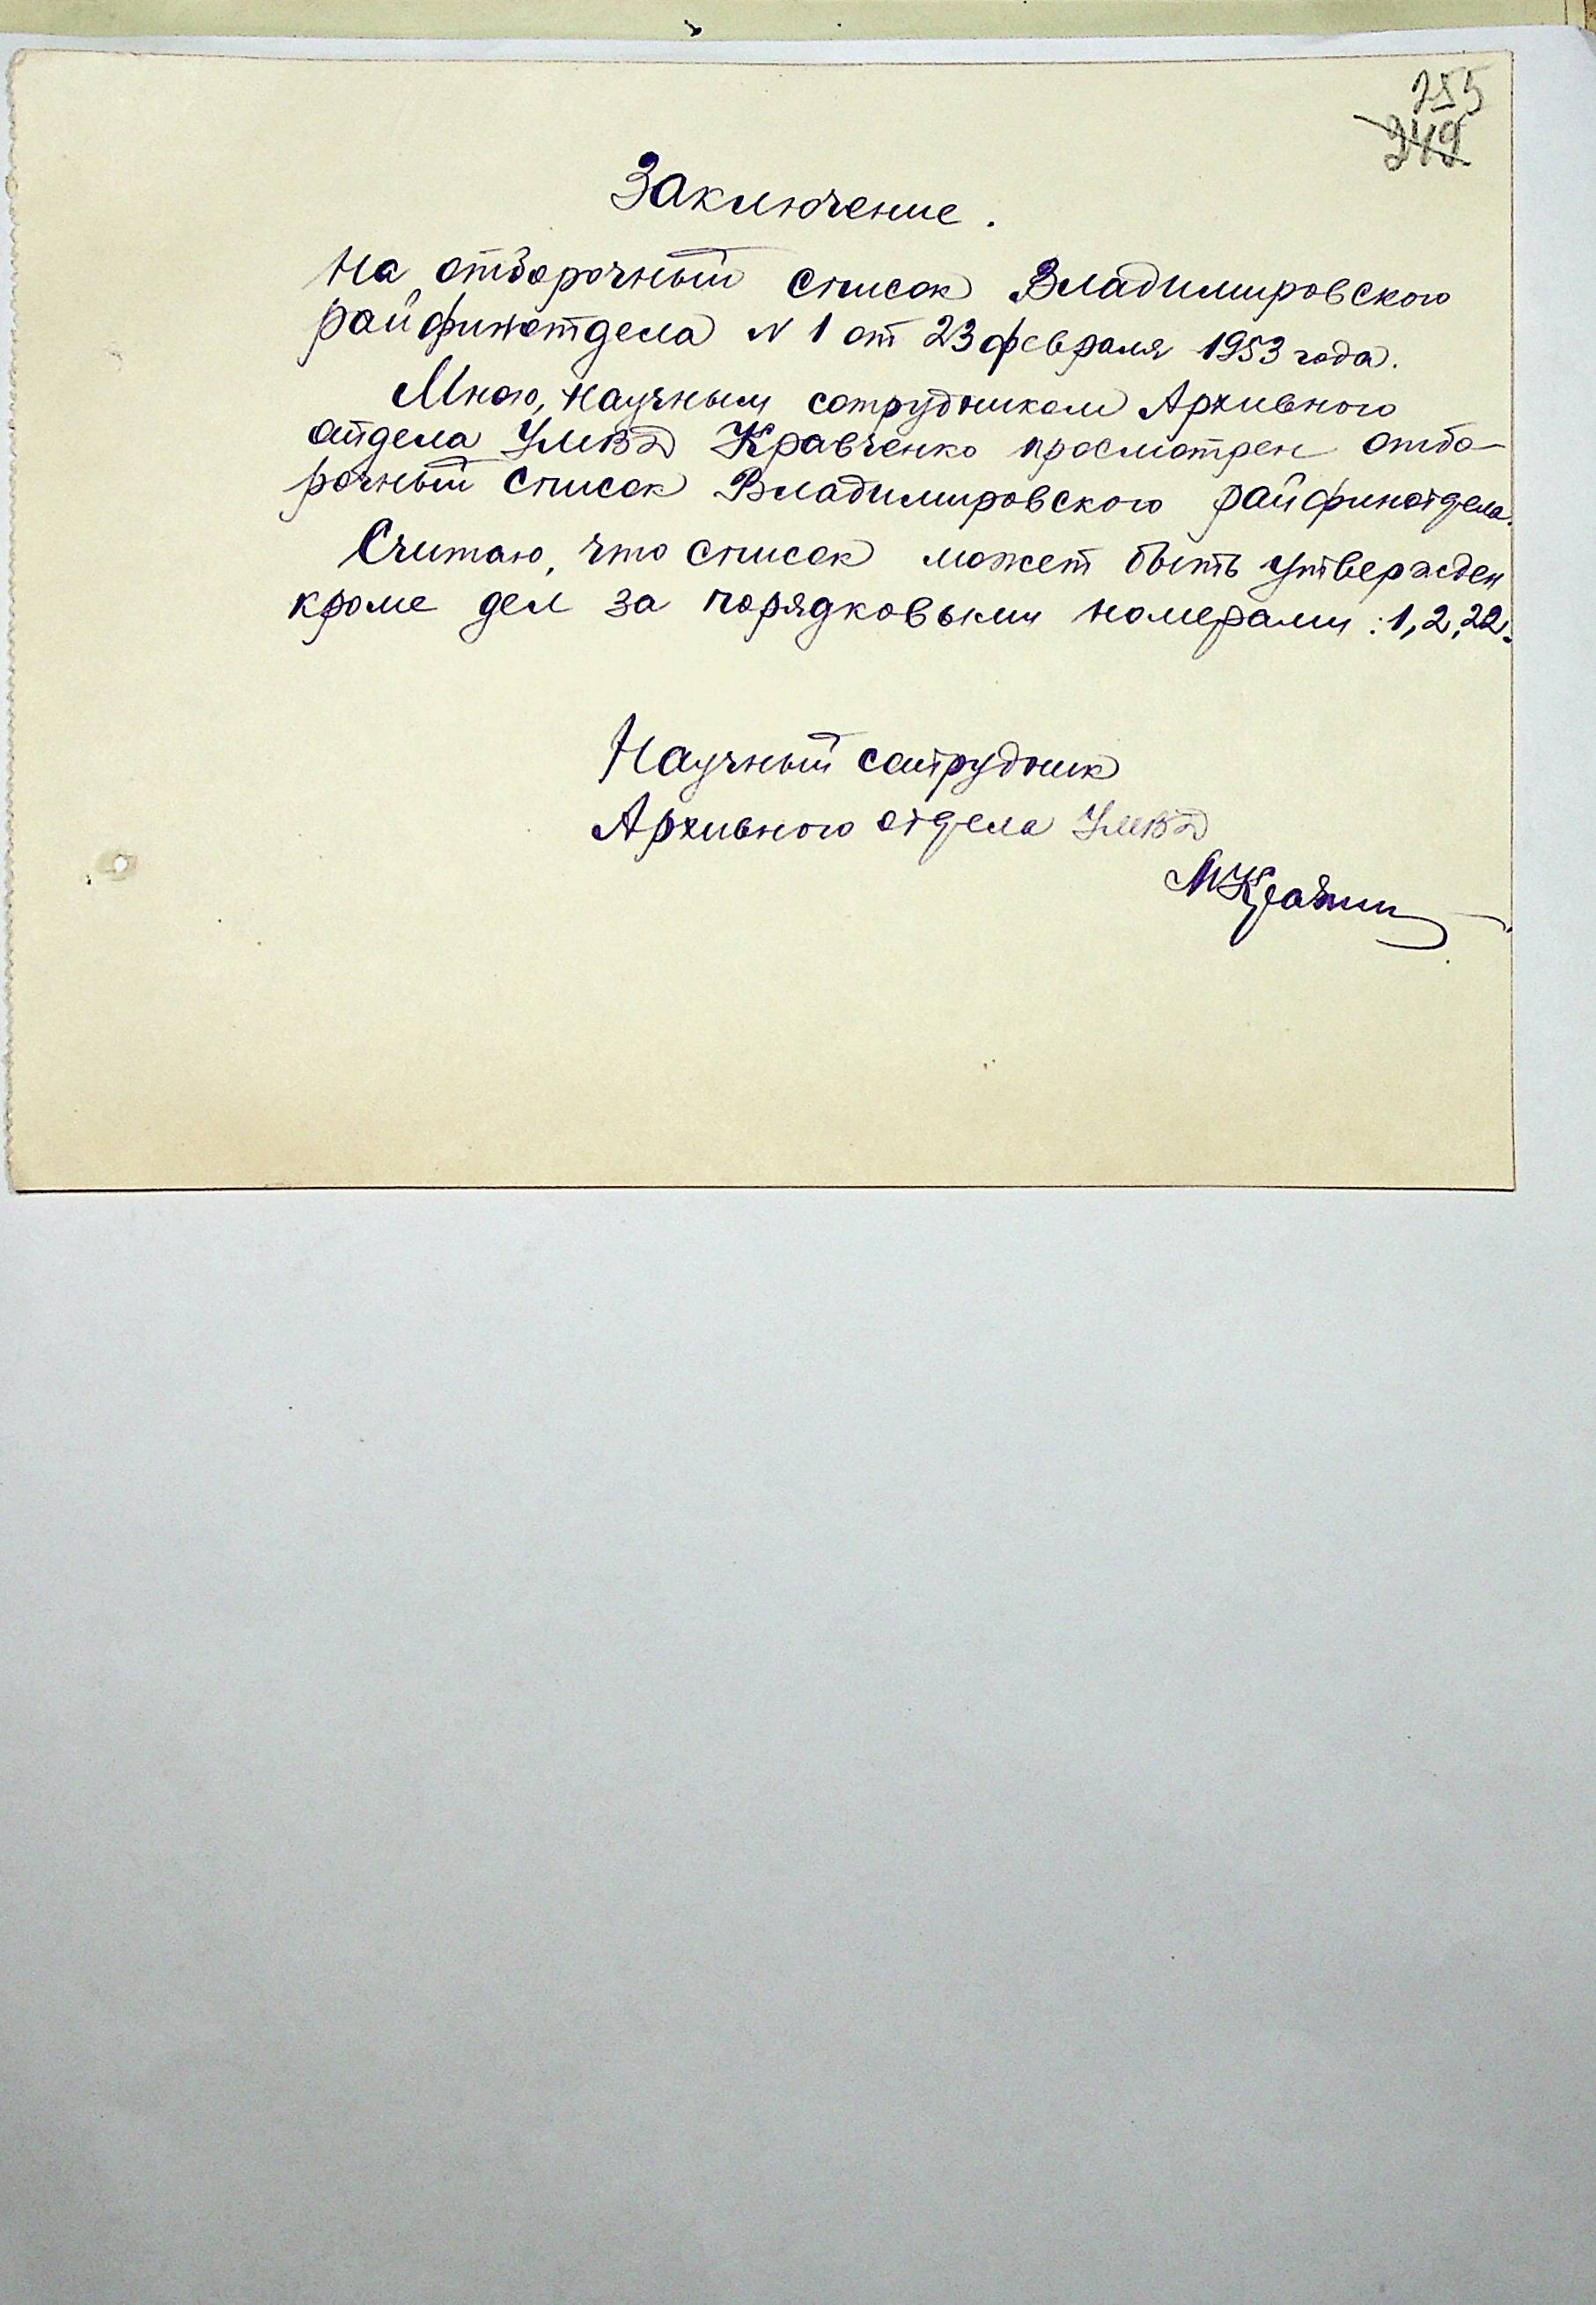 255
249
Заключение.
На отборочный список Владимировского
райфинотдела N 1 от 23 февраля 1953 года.
Мною, научным сотрудником Архивного
отдела УМВД Кравченко просмотрен отбо-
рочный список Владимировского райфинотдела.
Считаю, что список может быть утвержден
кроме дел за порядковыми номерами: 1, 2, 22.
Научный сотрудник
Архивного отдела УМВД